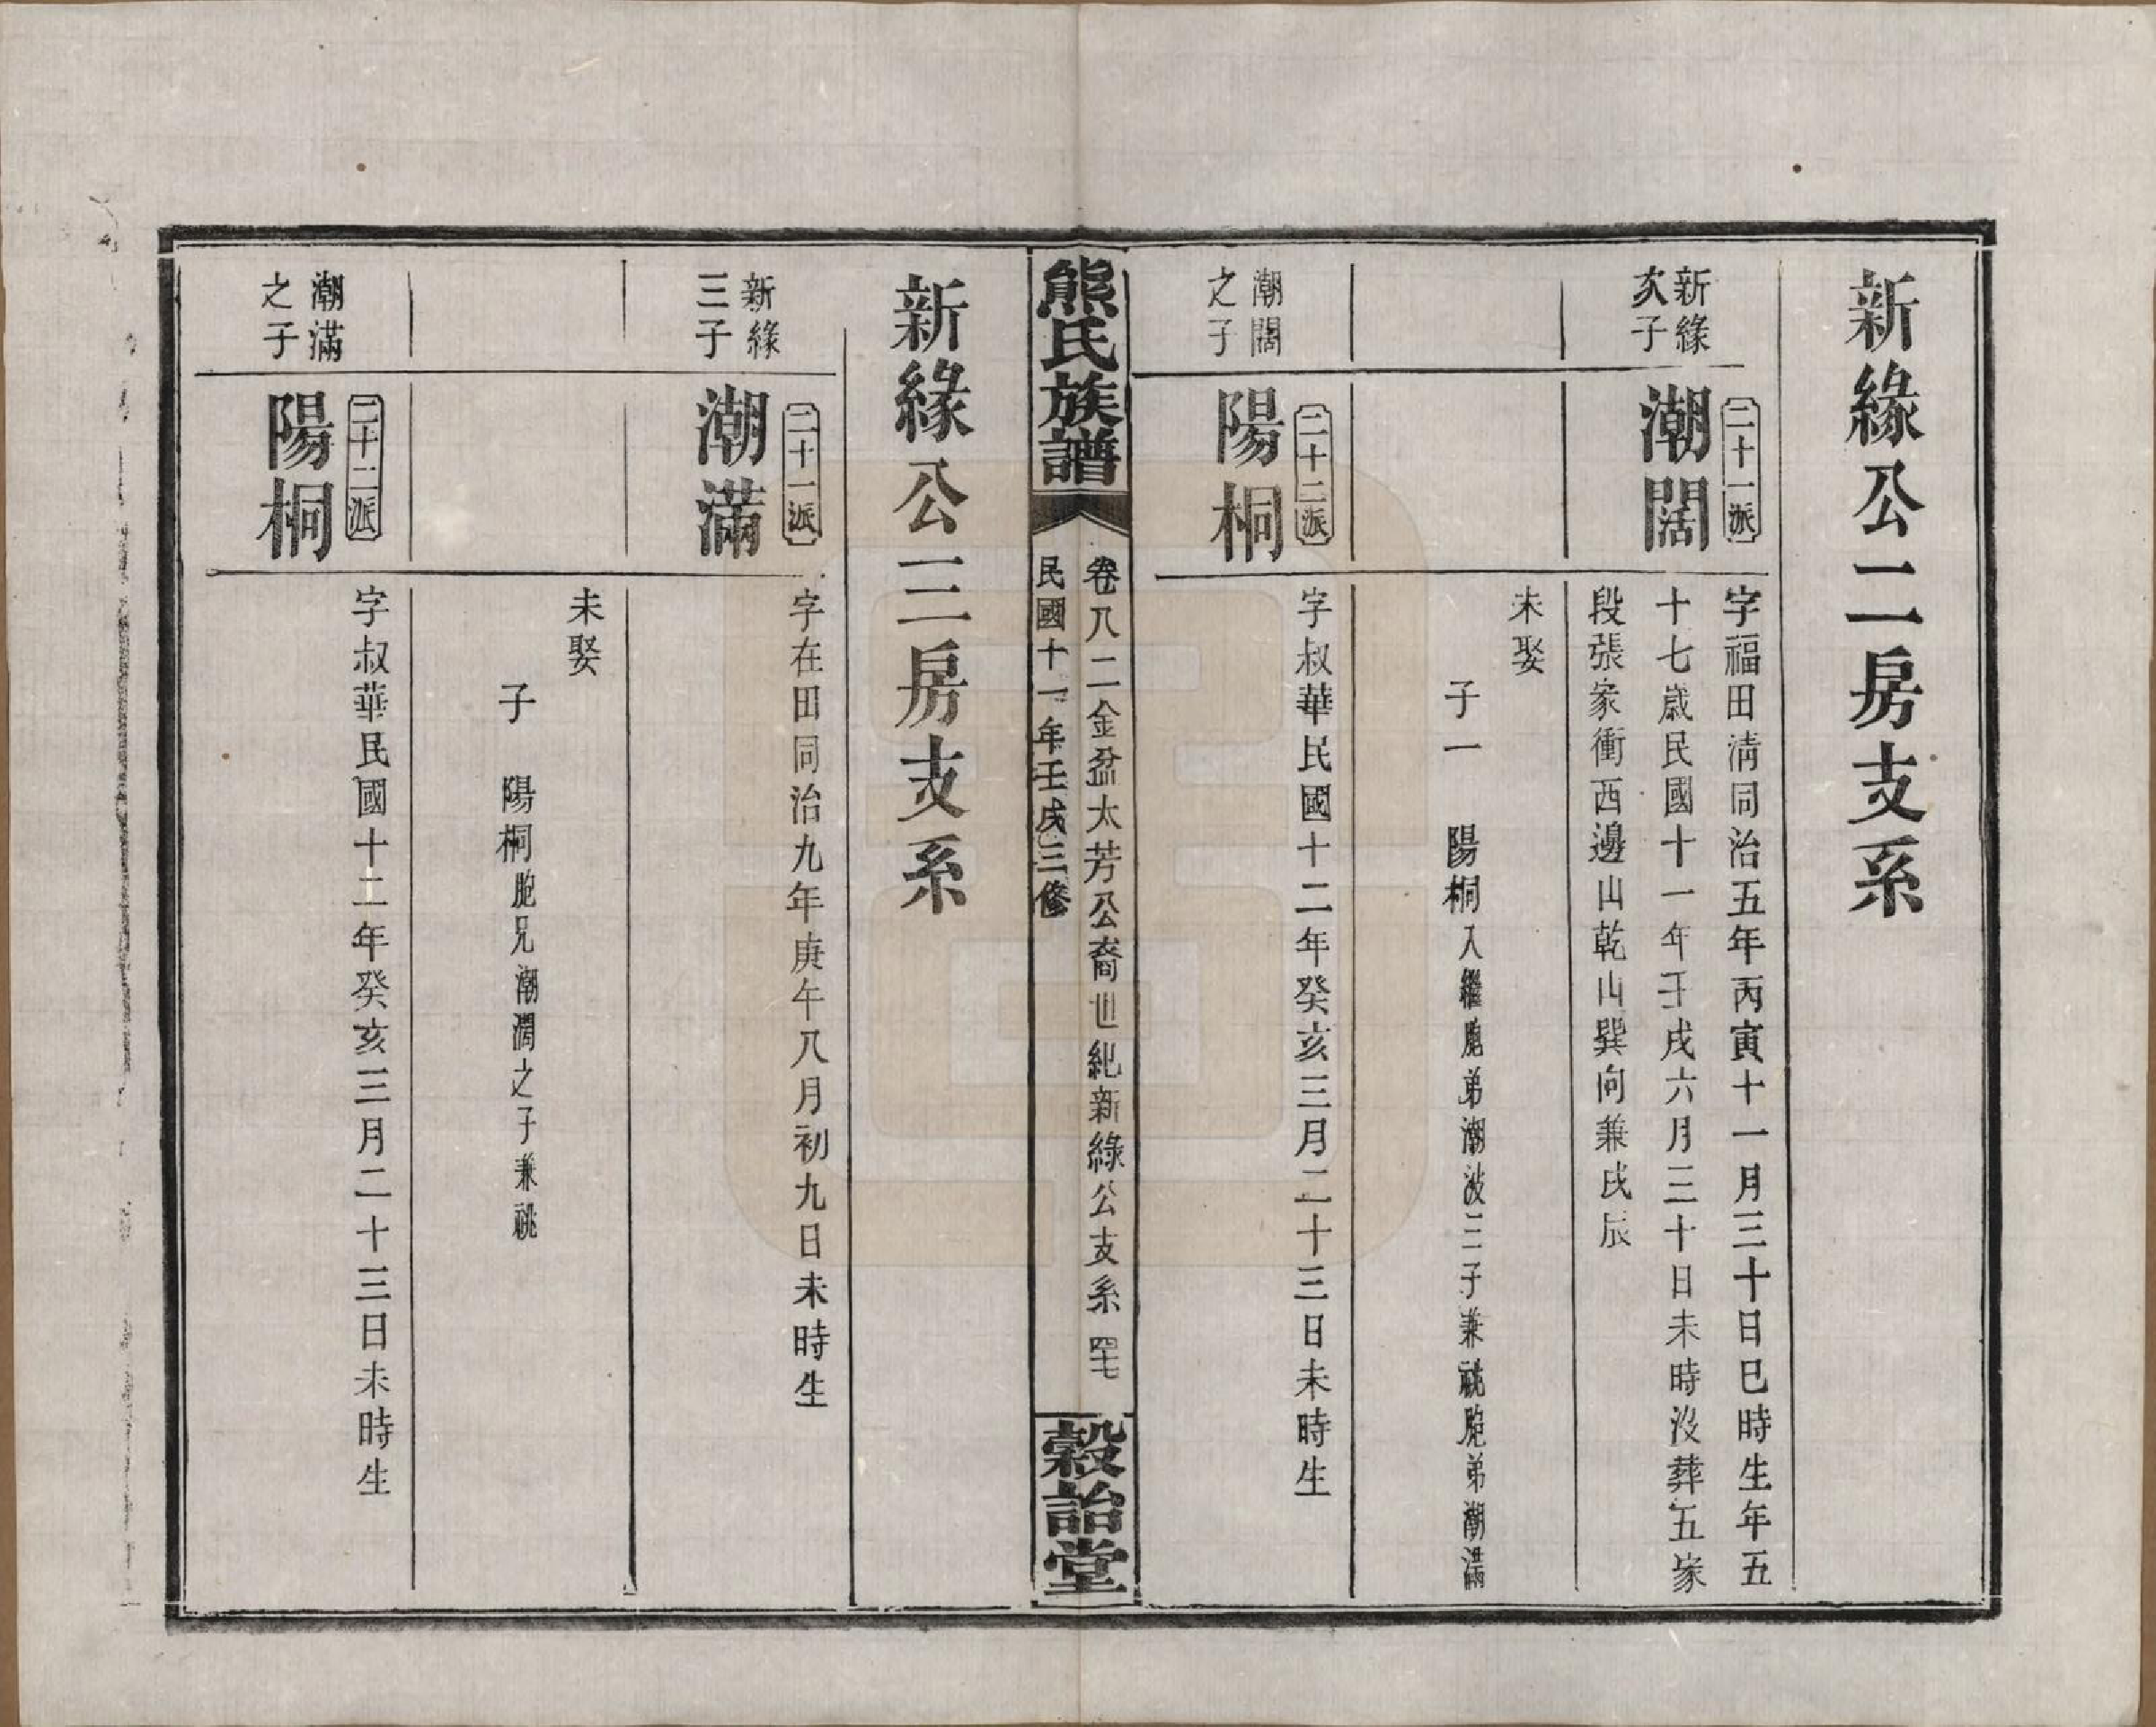 新緣公二房支系
新緣
次子
二十一派
潮闊
字福田清同治五年丙寅十一月三十日巳時生年五
十七歲民國十一年壬戌六月三十日未時沒葬五家
段張家衝西邊山乾山巽向兼戌辰
未娶
子一 陽桐入繼胞弟潮波三子兼祧胞弟潮滿
潮闊
之子
二十二派
陽桐
字叔華民國十二年癸亥三月二十三日未時生
熊氏族譜
卷八二金盆太芳公裔世紀新綠公支系 四十七
民國十一年壬戌三修
穀詒堂
新緣公三房支系
新緣
三子
二十一派
潮滿
字在田同治九年庚午八月初九日未時生
未娶
子 陽桐胞兄潮闊之子兼祧
潮滿
之子
二十二派
陽桐
字叔華民國十二年癸亥三月二十三日未時生